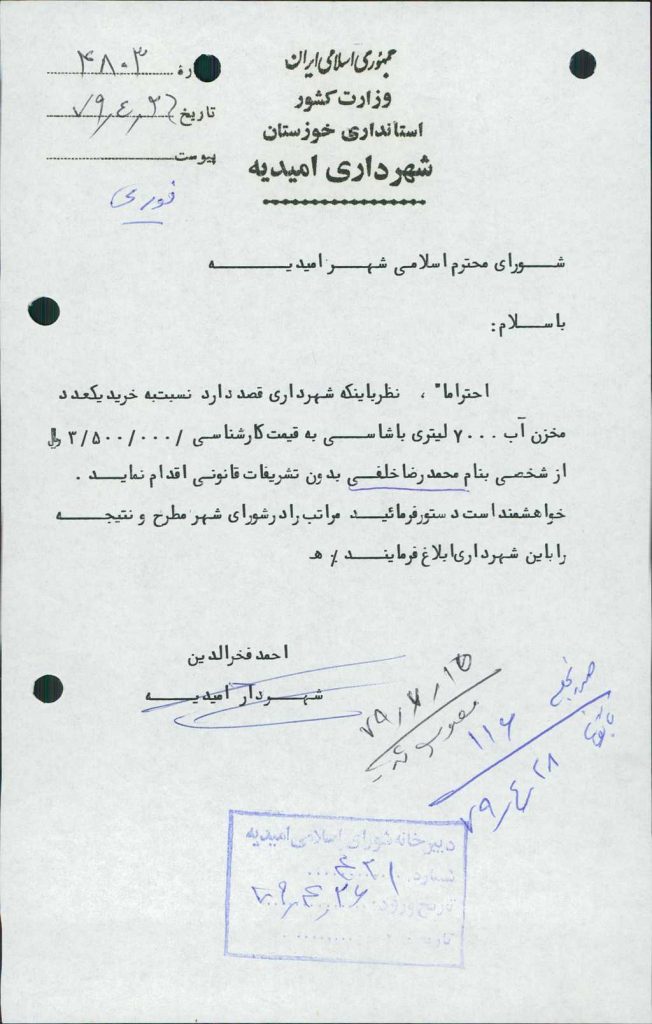 جمهوری اسلامی ایران
وزارت کشور
استانداری خوزستان
شهرداری امیدیه
ره ۴۸۰۳
تاریخ ۷۹,۴,۲۶
پیوست
فوری
شورای محترم اسلامی شهر امیدیه
باسلام:
احتراما" ، نظرباینکه شهرداری قصد دارد نسبت به خرید یکعدد
مخزن آب ۷۰۰۰ لیتری باشاسی به قیمت کارشناسی /۳/۵۰۰/۰۰۰
از شخصی بنام محمدرضا خلفی بدون تشریفات قانونی اقدام نماید .
خواهشمنداست دستورفرمائید مراتب رادرشورای شهر مطرح و نتیجه
راباین شهرداری ابلاغ فرمایند / ه
احمد فخرالدین
شهردار امیدیه
۱۱۶
۷۹,۴,۲۸
دبیرخانه شورای اسلامی امیدیه
شماره
تاریخ ورود: ۷۹,۴,۲۶